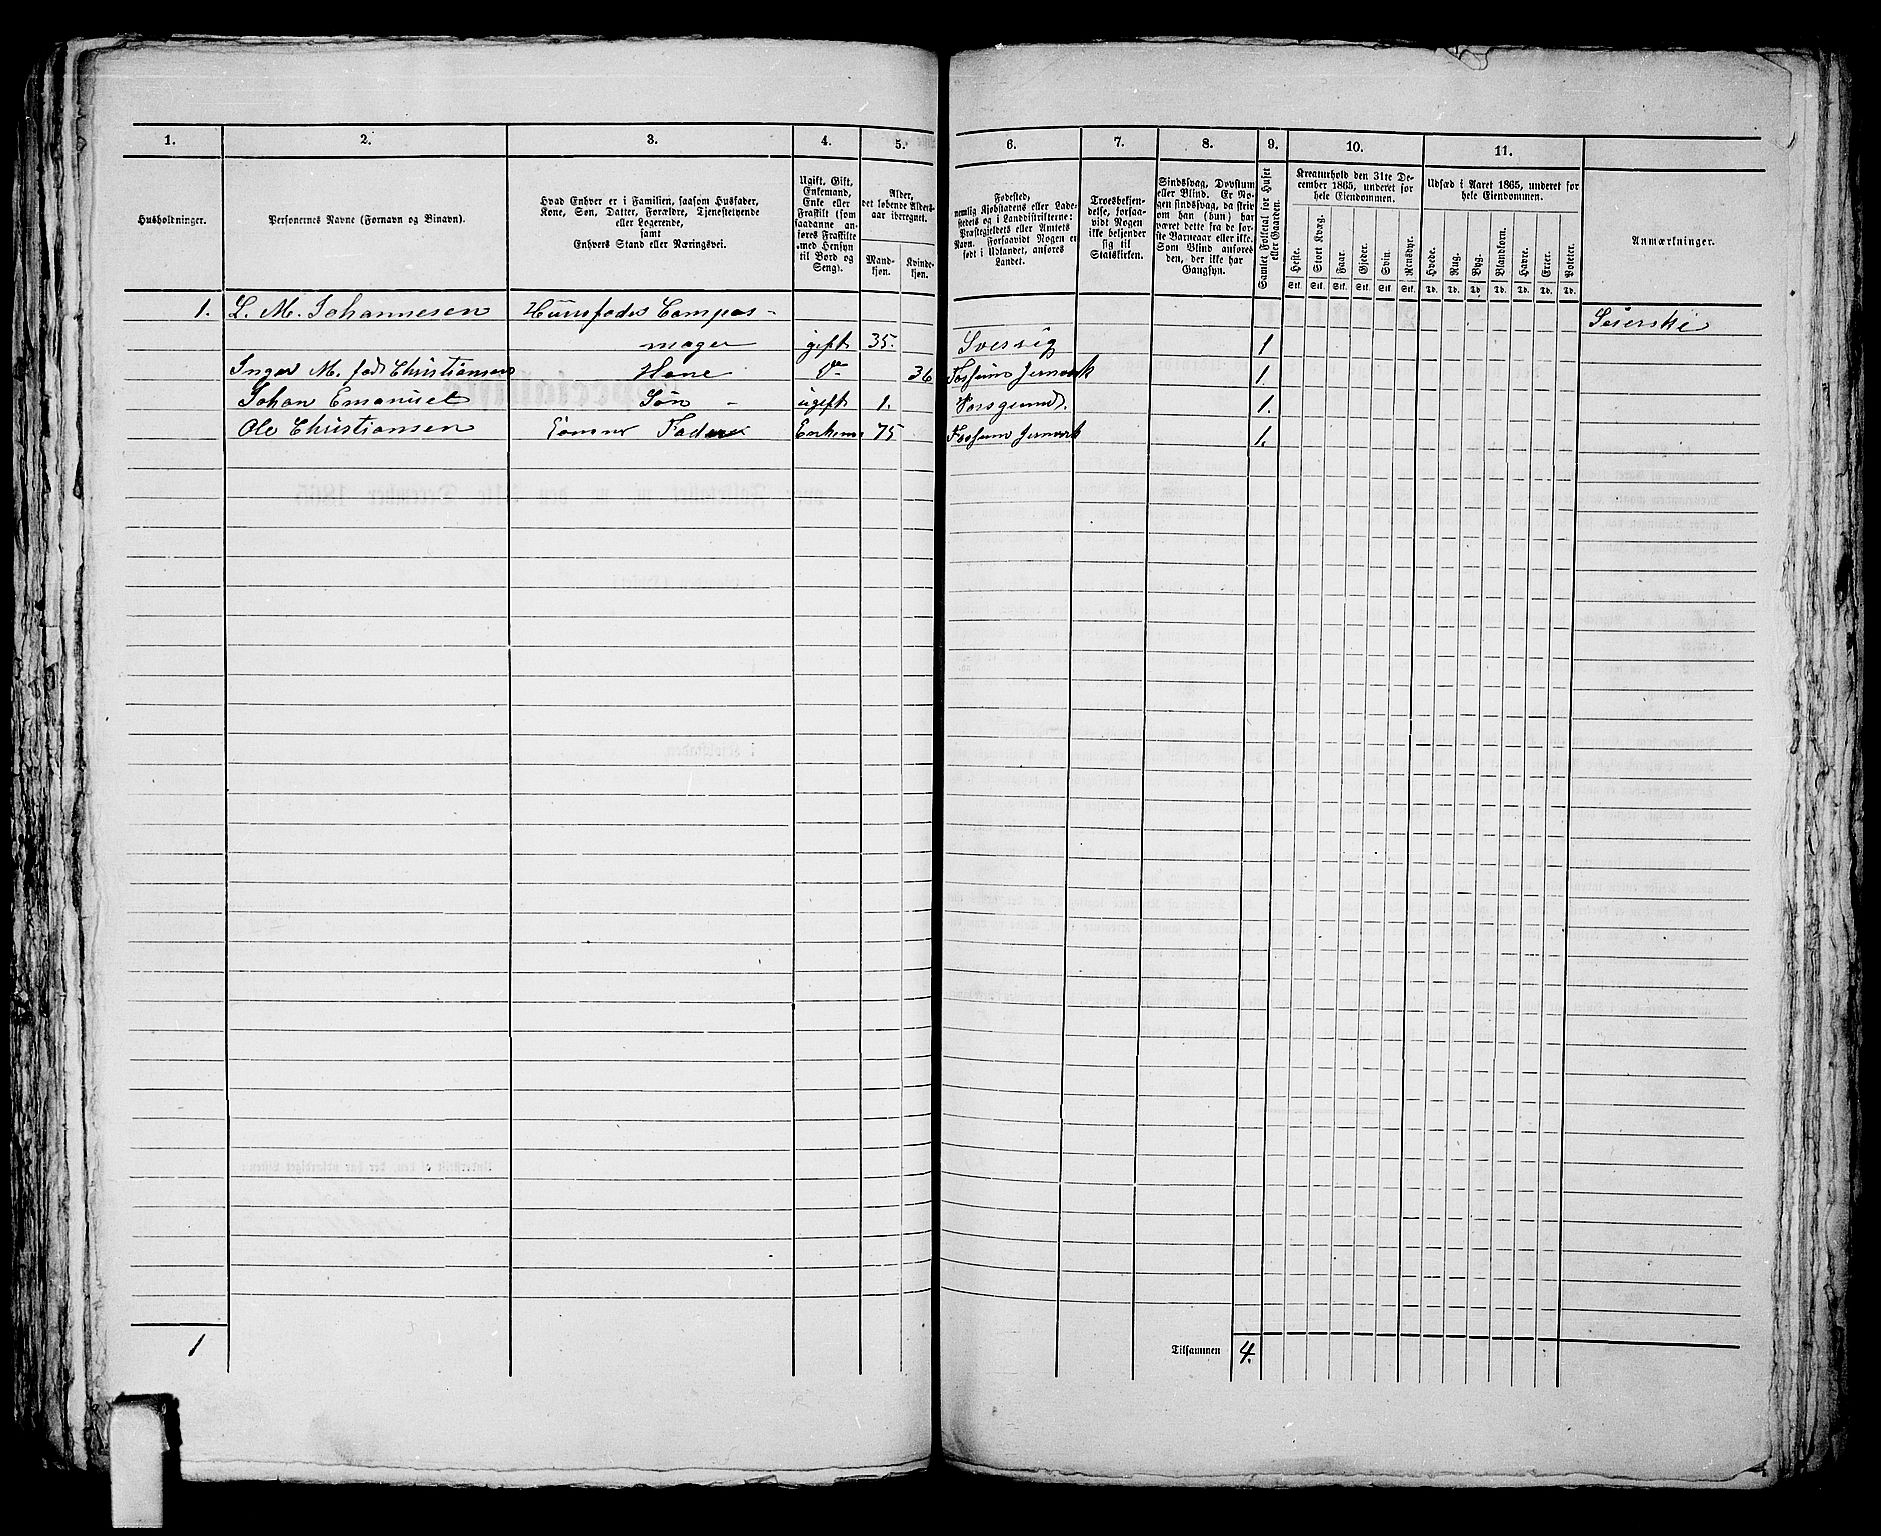 1. 2. 3. 4. 5. 6. 7. 8. 9. 10. 11.
Husholdninger.
Personernes Navne (Fornavn og Binavn).
Hvad Enhver er i Familien, saasom Husfader,
Kone, Søn, Datter, Forældre, Tjenestetyende
eller Logerende,
samt
Enhvers Stand eller Næringsvei.
Ugift, Gift,
Enkemand,
Enke eller
Fraskilt (som
saadanne an-
føres Fraskilte
med Hensyn
til Bord og
Seng).
Alder,
det løbende Alders-
aar iberegnet.
Mand-
kjøn.
Kvinde-
kjøn.
Fødested,
nemlig Kjøbstadens eller Lade-
stedets og i Landdistrikterne:
Præstegjeldets eller Amtets
Navn. Forsaavidt Nogen er
født i Udlandet, anføres
Landet.
Troesbekjen-
delse, forsaa-
vidt Nogen
ikke bekjender
sig til
Statskirken.
Sindssvag, Døvstum
eller Blind. Er No-
gen sindssvag, da skriv
om han (hun) har
været dette fra de før-
ste Barneaar eller ikke.
Som Blind anføres
den, der ikke har
Gangsyn.
Samlet Folketal for Huset
eller Gaarden.
Kreaturhold den 31te De-
cember 1865, underet for
hele Eiendommen.
Heste. Stort Kvæg. Faar. Gjeder. Svin. Rensdyr.
Stk. Stk. Stk. Stk. Stk. Stk.
Udsæd i Aaret 1865, underet for
hele Eiendommen.
Hvede. Rug. Byg. Blandkorn. Havre. Erter. Poteter.
Td. Td. Td. Td. Td. Td. Td.
Anmærkninger.
1. L. M. Johannesen Huusfader Compas- Seierske
mager gift 35. Sversig 1
Inger M. fød Christiansen Kone do 36 Fossum Jernverk 1.
Johan Emanuel Søn - ugift 1. Porsgrund. 1.
Ole Christiansen Fader Enkem. 75 Fossum Jernverk 1.
1 Tilsammen 4.